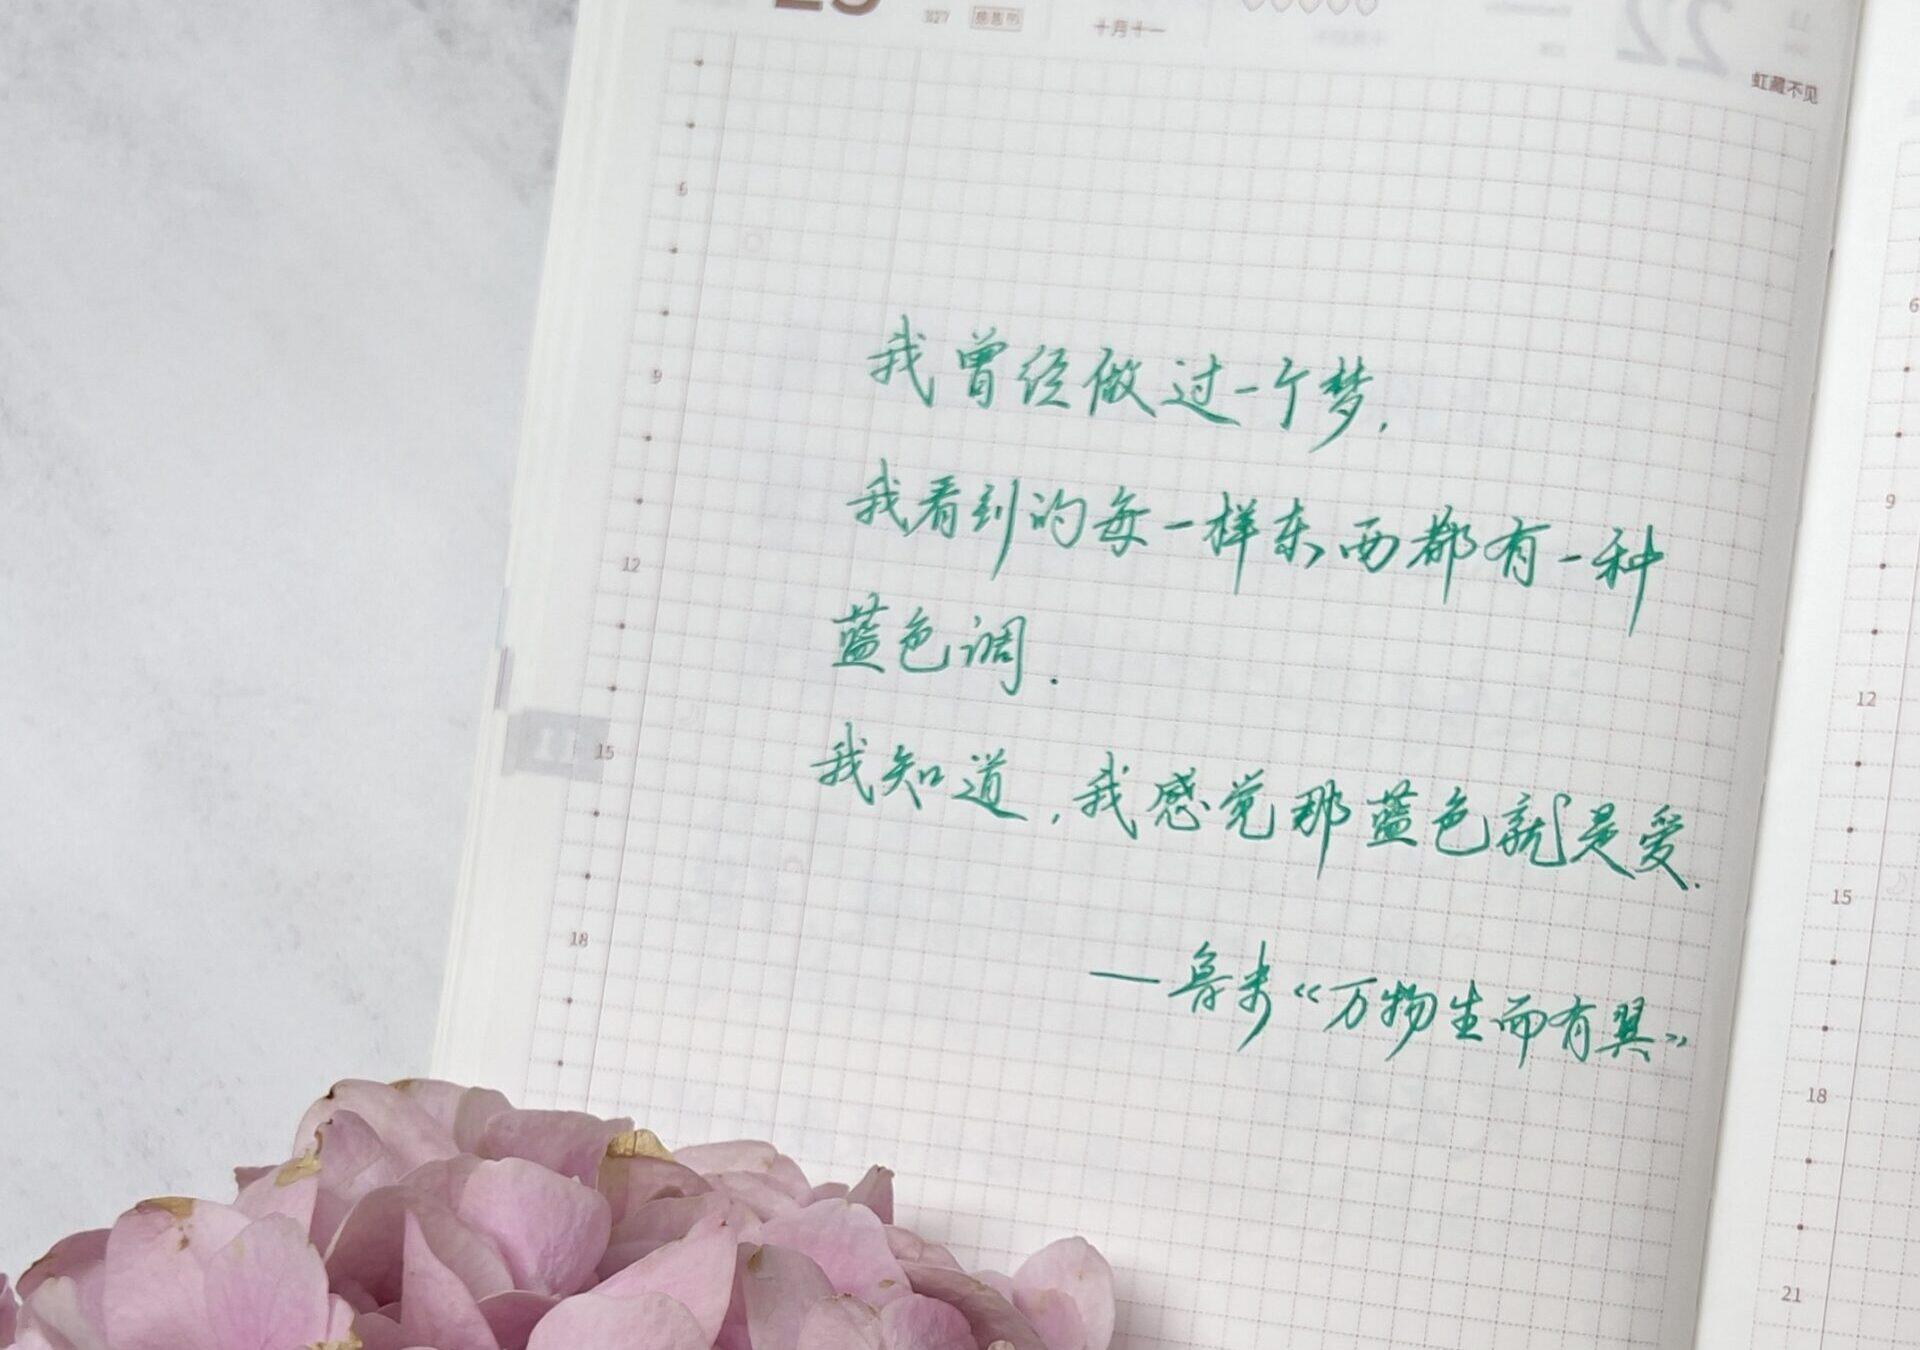 十月十一
虹藏不见
我曾经做过一个梦，
我看到的每一样东西都有一种
蓝色调.
我知道，我感觉那蓝色就是爱.
——鲁米《万物生而有翼》
6
9
12
15
18
6
9
12
15
18
21